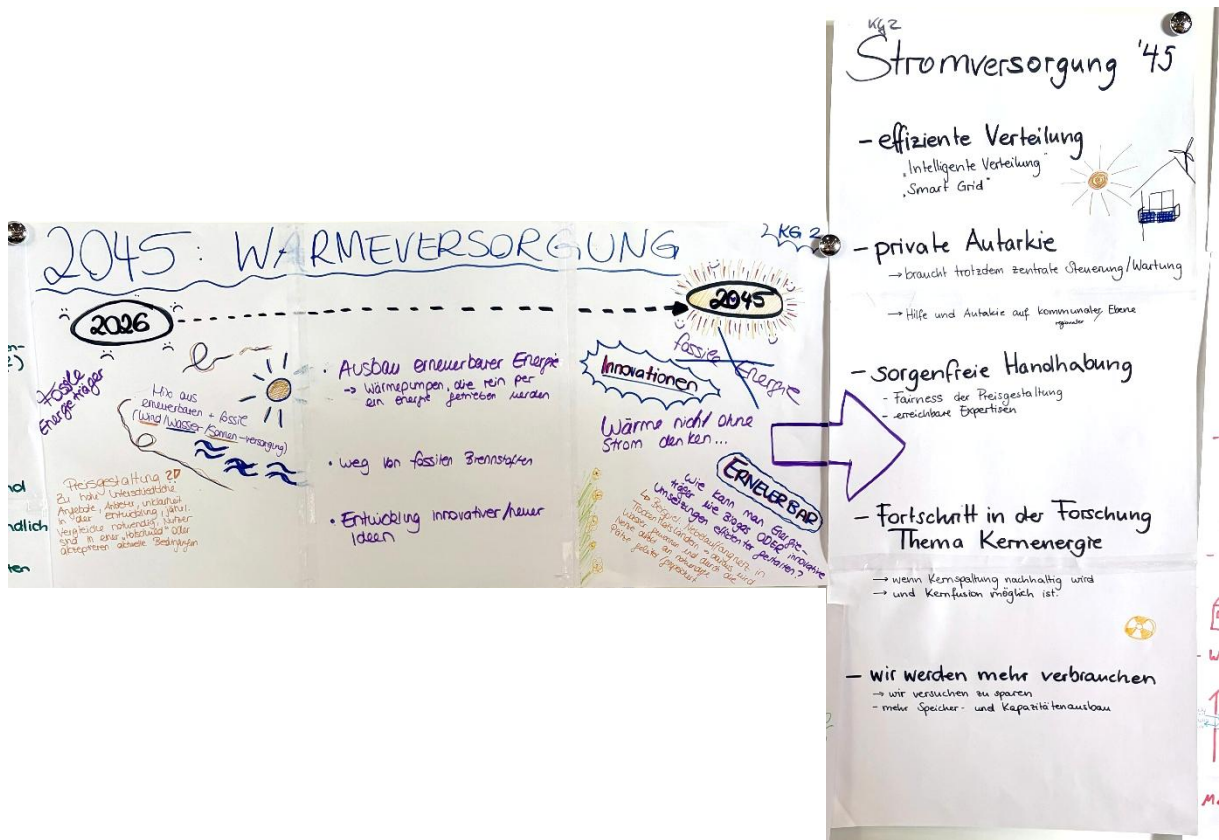 2045: WÄRMEVERSORGUNG
KG 2
2026
2045
Fossile
Energieträger
Mix aus
erneuerbaren + fossile
(Wind/Wasser/Sonnen-versorgung)
Preisgestaltung ?!
Zu hohe Unterschiedliche
Angebote, Anbieter, unklarheit
in der entwicklung, jährl.
Vergleiche notwendig, Nutzer
sind in einer "Holschuld" oder
akzeptieren aktuelle Bedingungen
• Ausbau erneuerbarer Energie
→ Wärmepumpen, die rein per
ein energie getrieben werden
• weg von fossilen Brennstoffen
• Entwicklung innovativer/neuer
Ideen
Innovationen
fossile Energie
Wärme nicht ohne
Strom denken...
ERNEUERBAR
Wie kann man Energie-
träger wie Biogas ODER innovative
Umsetzungen effizienter gestalten?
↳ Beispiel: in
wird
Wasser und durch die
KG 2
Stromversorgung '45
- effiziente Verteilung
"Intelligente Verteilung"
"Smart Grid"
- private Autarkie
→ braucht trotzdem zentrale Steuerung/Wartung
→ Hilfe und Autakie auf kommunaler Ebene
regionaler
- sorgenfreie Handhabung
- Fairness der Preisgestaltung
- erreichbare Expertisen
- Fortschritt in der Forschung
Thema Kernenergie
→ wenn Kernspaltung nachhaltig wird
→ und Kernfusion möglich ist.
- wir werden mehr verbrauchen
→ wir versuchen zu sparen
- mehr Speicher- und Kapazitätenausbau